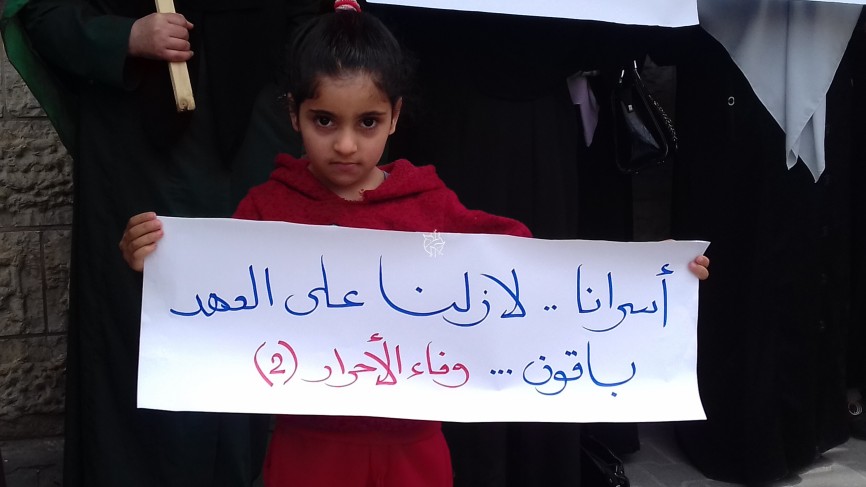 أسرانا .. لازلنا على العهد
باقون ... وفاء الأحرار (2)